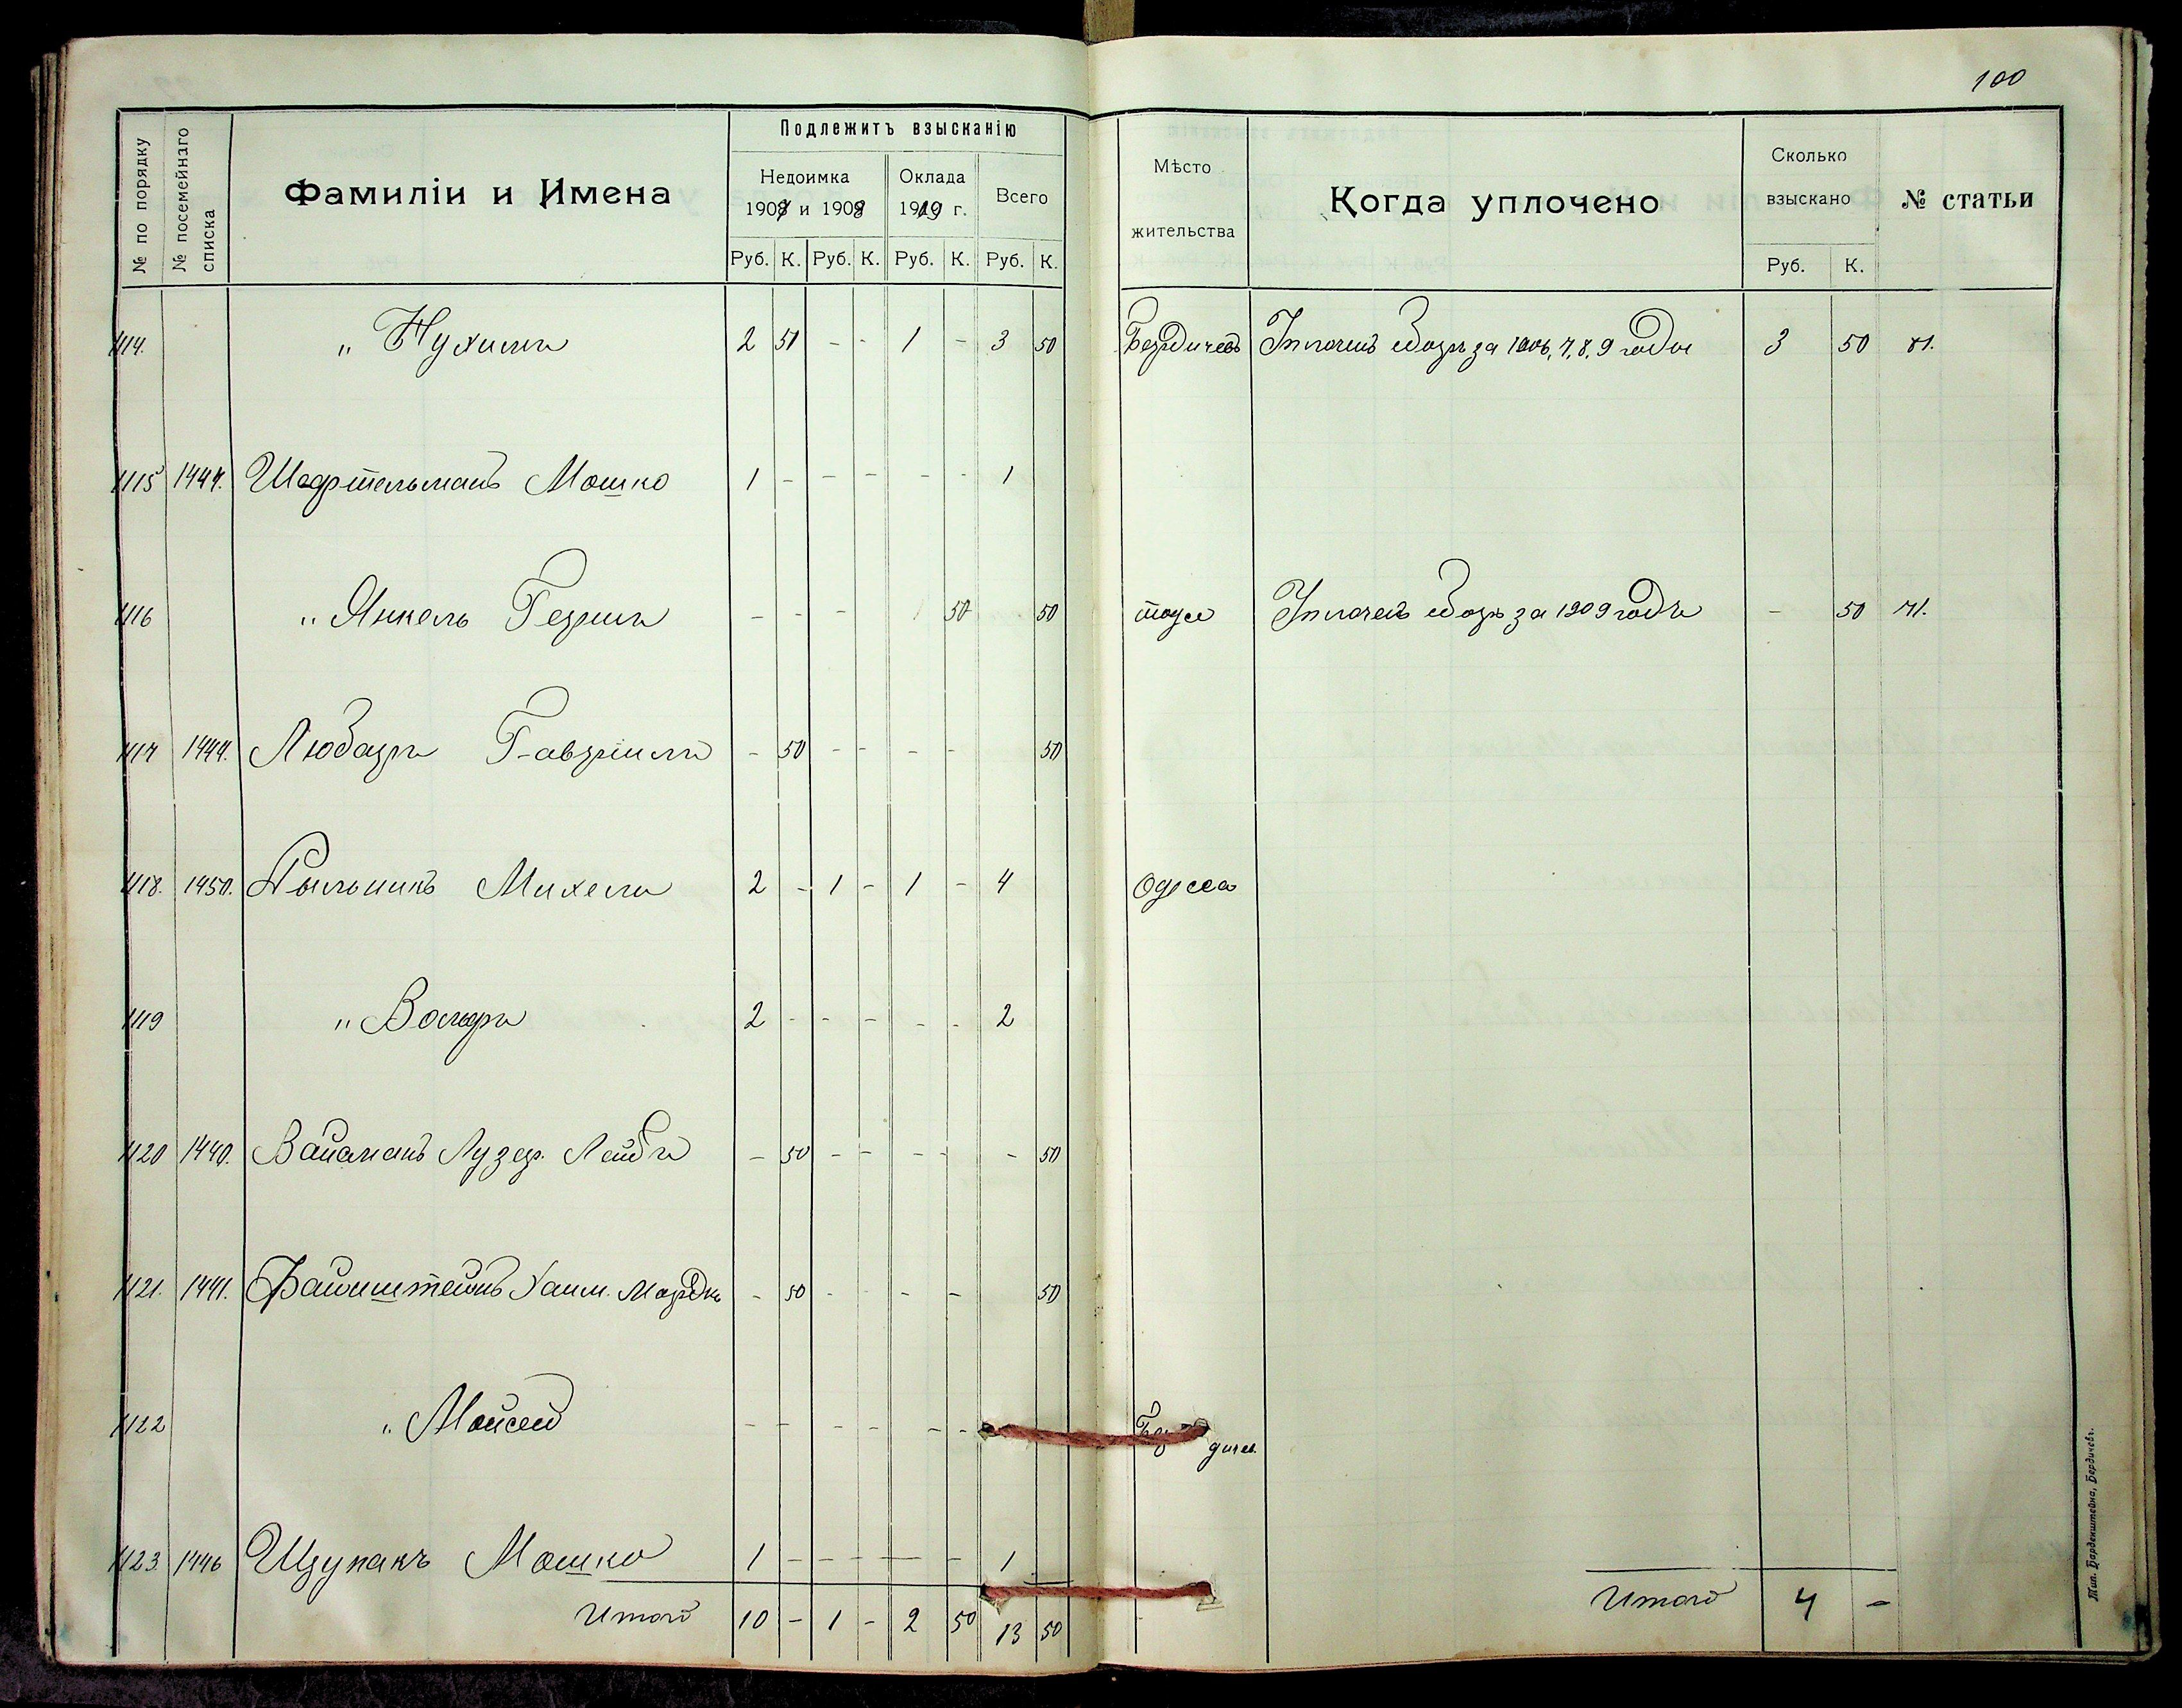 100
№ по порядку
№ посемейнаго списка
Фамиліи и Имена
Подлежитъ взысканію
Недоимка
1908 и 1908
Оклада
1909 г.
Всего
Руб. К. Руб. К. Руб. К. Руб. К.
Мѣсто жительства
Когда уплочено
Сколько взыскано
Руб. К.
№ статьи
1114. " Нухимъ 2 50 - - 1 - 3 50 Бердичевъ Уплочено сборъ за 1906, 7, 8, 9 годы 3 50 81.
1115 1447. Шафтельманъ Мошко 1 - - - - - 1
1116 " Янкель Гершъ - - - 50 50 тоже Уплочено сборъ за 1909 годъ - 50 71.
1117 1444. Любаръ Гавріилъ - 50 - - - - 50
1118. 1450. Рыльникъ Михель 2 - 1 - 1 - 4 Одесса
1119 " Вольфъ 2 - - - - - 2
1120 1440. Вайсманъ Лузер. Лейбъ - 50 - - - - - 50
1121. 1441. Файнштейнъ Хаим. Мордко - 50 - - - - 50
1122 " Моисей - - - - - - Бердичев.
1123. 1446 Щупакъ Мошко 1 - - - - - 1
Итого 10 - 1 - 2 50 13 50
Итого 4 -
Тип. Барденштейна, Бердичевъ.